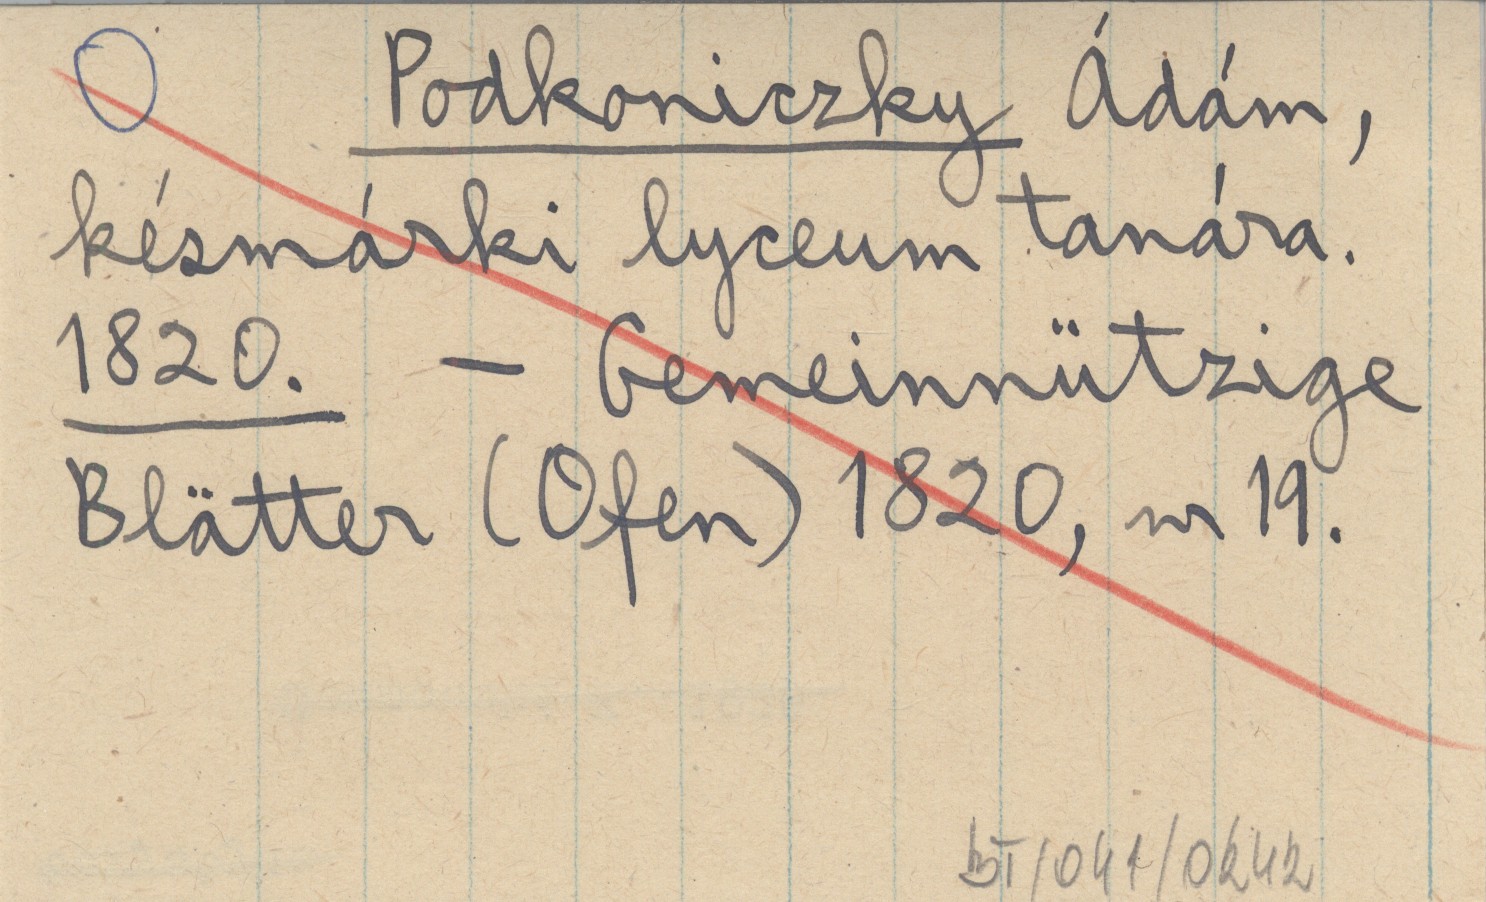 Podkoniczky Ádám,
késmárki lyceum tanára.
1820. – Gemeinnützige
Blätter (Ofen) 1820, nr 19.
BT/041/0242